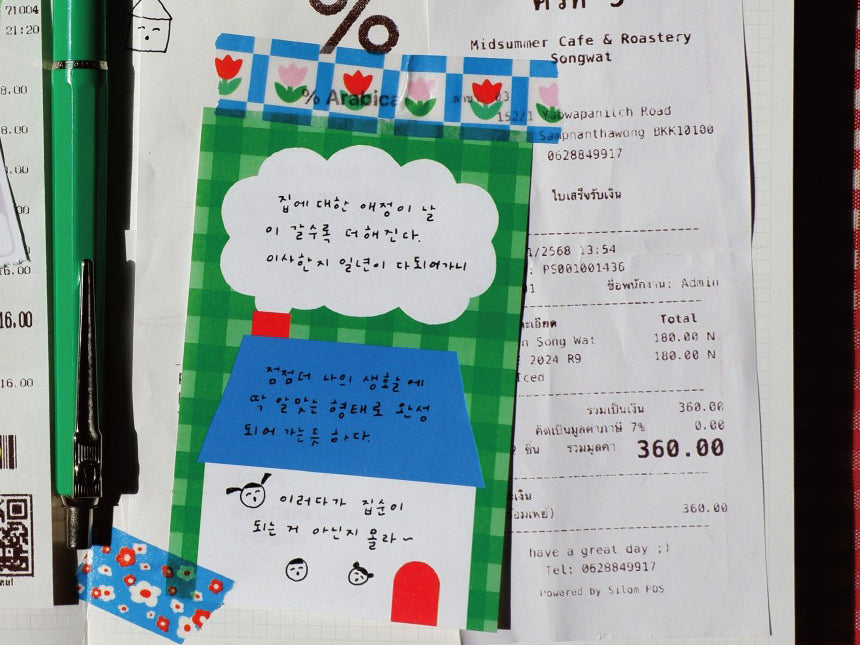 71004
21:20
8.00
8.00
16.00
16.00
16.00
%
% Arabica
Midsummer Cafe & Roastery
Songwat
Yaowapanitch Road
Sampnanthawong BKK10100
0628849917
ใบเสร็จรับเงิน
/2568 13:54
: PS001001436
ชื่อพนักงาน: Admin
Total
Song Wat 180.00 N
2024 R9 180.00 N
Iced
รวมเป็นเงิน 360.00
คิดเป็นมูลค่าภาษี 7% 0.00
ชิ้น รวมมูลค่า 360.00
360.00
have a great day ;)
Tel: 0628849917
Powered by Silom POS
집에 대한 애정이 날
이 갈수록 더해진다.
이사한지 일년이 다되어가니
점점더 나의 생활에
딱 알맞는 형태로 완성
되어 가는듯 하다.
이러다가 집순이
되는 거 아닌지 몰라~